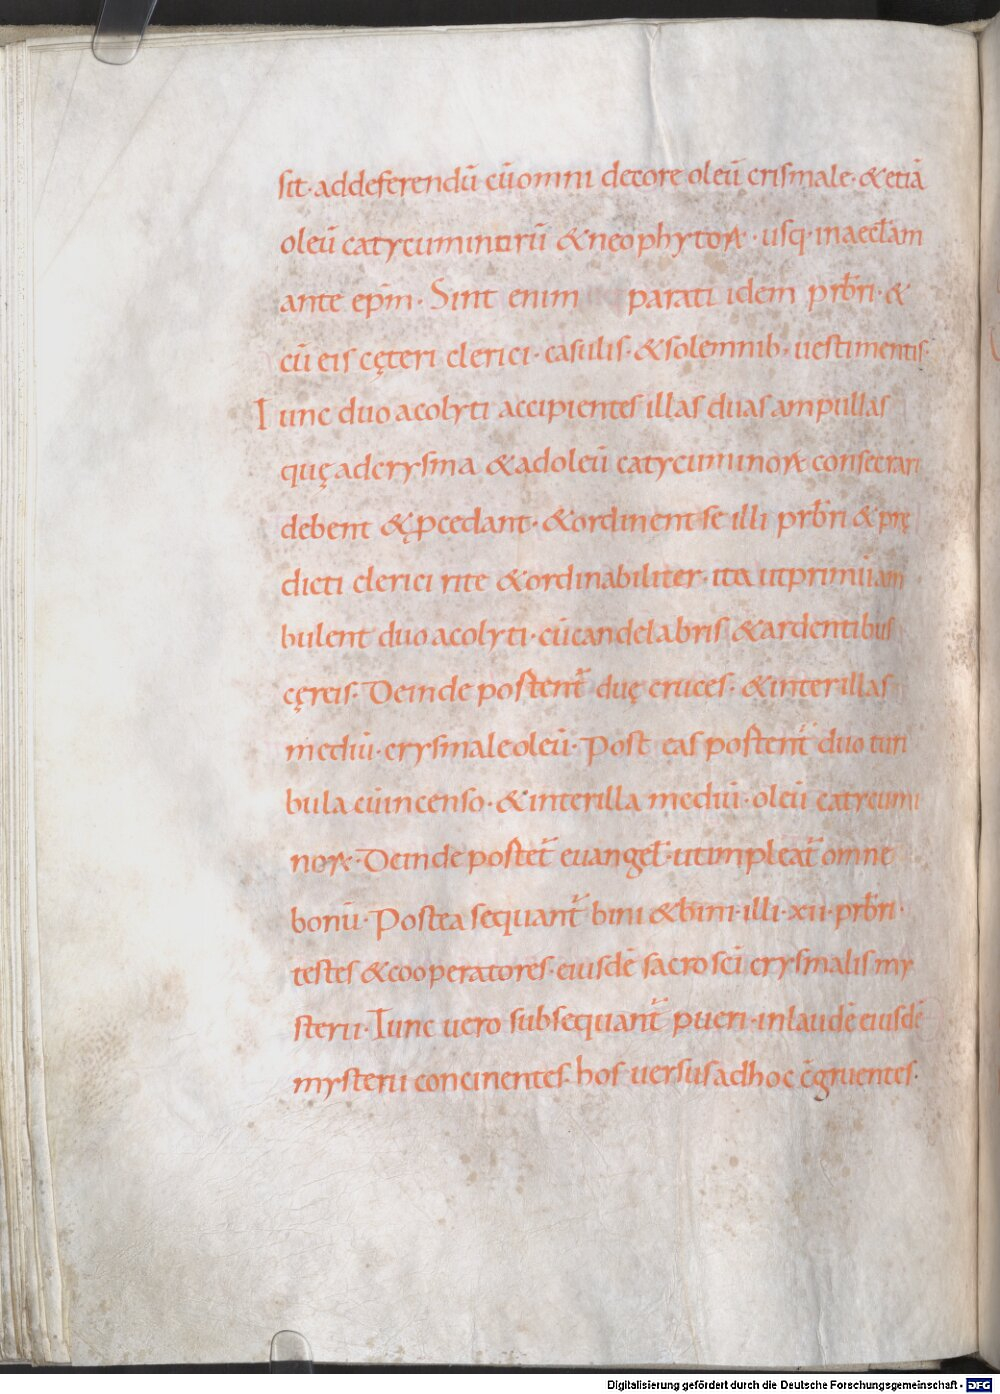 sit· addeferendū cūomni decore oleū crismale· &etiā
oleū catycuminorū &neophytoꝝ· usq· inaeccl̄am
ante ep̄m· Sint enim parati idem prb̄ri· &
cū eis cęteri clerici· casulis· &solemnib· uestimentis·
Tunc duo acolyti accipientes illas duas ampullas
quę adcrysma &adoleū catycuminoꝝ consecrari
debent &ꝓcedant· &ordinent se illi prb̄ri &prę
dicti clerici rite &ordinabiliter· ita utprimū am
bulent duo acolyti· cū candelabris &ardentibus
cęreis· Deinde postent̄ duę cruces· &inter illas
mediū· crysmale oleū· Post eas postent̄ duo turi
bula cū incenso· &inter illa mediū· oleū catycumi
noꝝ· Deinde postet̄ euangel̄· ut impleat̄ omne
bonū· Postea sequant̄ bini &bini· illi· xii· prb̄ri·
testes &cooperatores· eiusdē sacro sc̄i crysmalis my
sterii· Tunc uero subsequant̄ pueri· in laudē eiusdē
mysterii concinentes· hos uersus adhoc c̄gruentes·
Digitalisierung gefördert durch die Deutsche Forschungsgemeinschaft - DFG